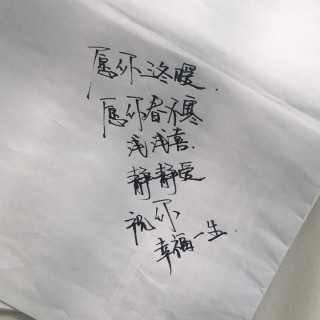 愿你冬暖.
愿你春不寒
浅浅喜.
静静爱
祝你
幸福一生.